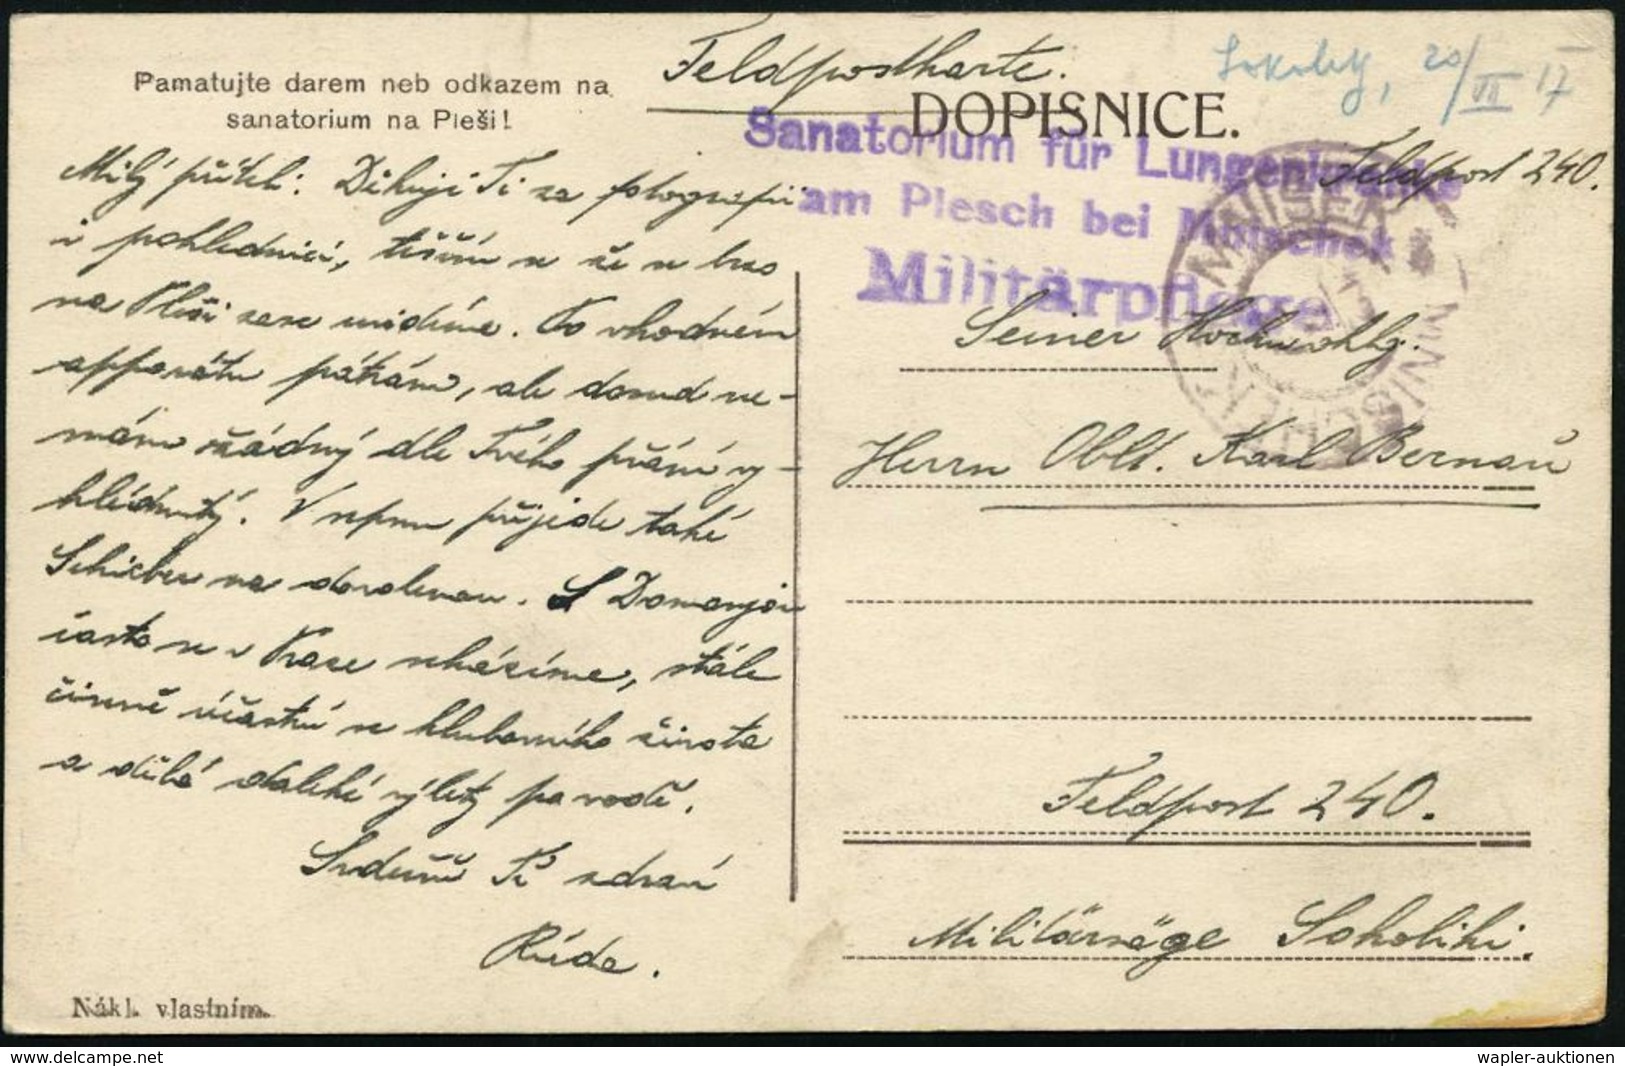 Pamatujte darem neb odkazem na
sanatorium na Pleši!
Feldpostkarte.
DOPISNICE.
20/VII 17
Sanatorium für Lungenkranke
am Plesch bei Mnischek
Militärpflege
Feldpost 240.
MNÍŠEK
MNISCHEK
Milý příteli! Děkuji Ti za fotografii
i pohlednici, těším se že se brzo
na Pleši zase uvidíme. Po vhodném
apparátu pátrám, ale dosud ne-
mám žádný dle Tvého přání vy-
hlédnutý. V srpnu přijede také
Schieber na dovolenou. S
často se v Praze scházíme, stále
činně účastní se klubovního života
a dělá daleké výlety po vodě.
Srdečně Tě zdraví
Rúda.
Seiner Hochwohlg.
Herrn Oblt. Karl Bernaũ
Feldpost 240.
Militärsäge Sokoliki.
Nákl. vlastním.
delcampe.net
wapler-auktionen